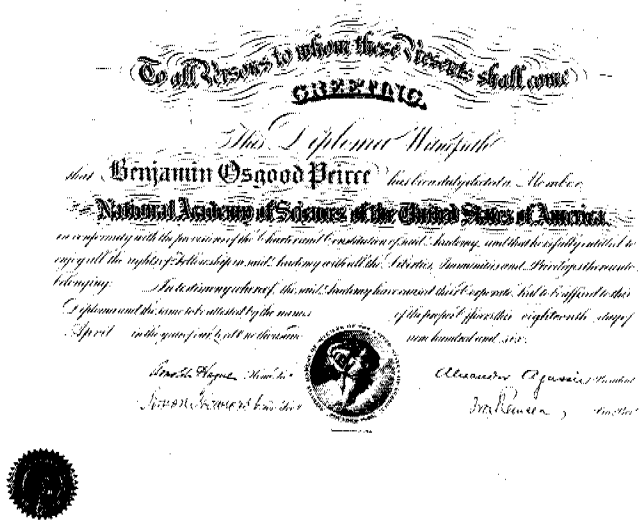 To all Persons to whom these Presents shall come
GREETING.
This Diploma Witnesseth
that Benjamin Osgood Peirce has been duly elected a Member
National Academy of Sciences of the United States of America
in conformity with the provisions of the Charter and Constitution of said Academy, and that he is fully entitled to
enjoy all the rights of Fellowship in said Academy with all the Liberties, Immunities and Privileges thereunto
belonging. In testimony whereof, the said Academy have caused their Corporate Seal to be affixed to this
Diploma and the same to be attested by the names of the proper officers this eighteenth day of
April in the year of our Lord one thousand nine hundred and six.
Arnold Hague Alexander Agassiz President
Ira Remsen,